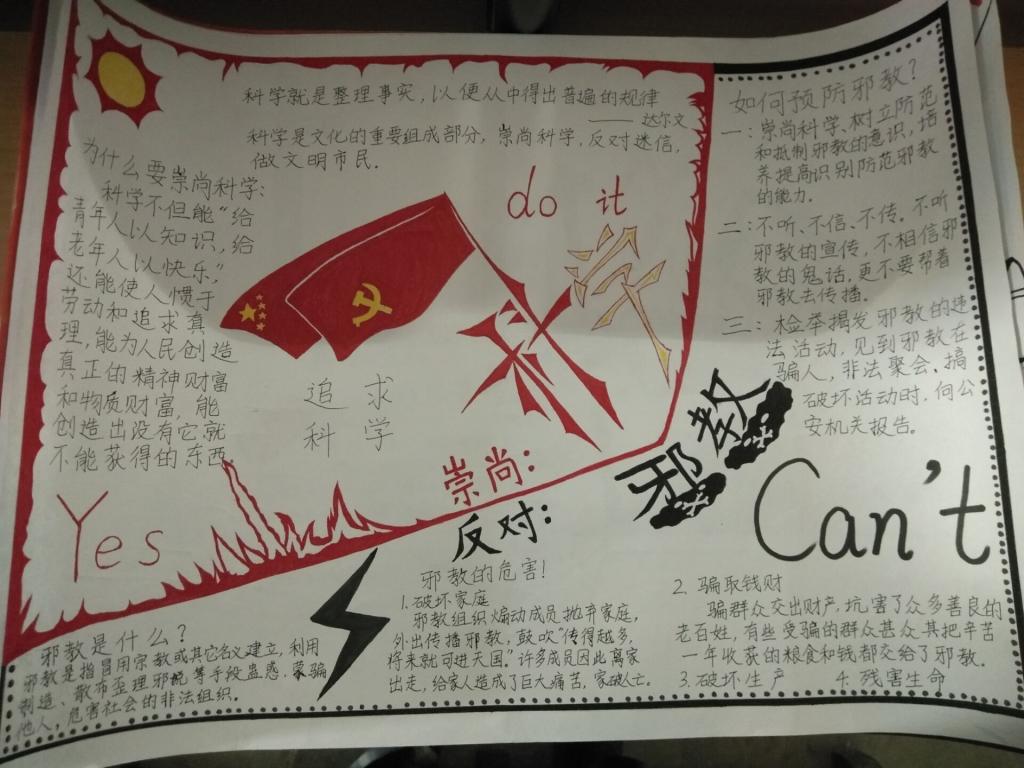 科学就是整理事实，以便从中得出普遍的规律
—— 达尔文
科学是文化的重要组成部分，崇尚科学，反对迷信，
做文明市民.
为什么要崇尚科学:
科学不但能“给
青年人以知识，给
老年人以快乐，”
还能使人惯于
劳动和追求真
理，能为人民创造
真正的精神财富
和物质财富，能
创造出没有它就
不能获得的东西
do it
科学
追求
科学
Yes
崇尚:
反对:
邪教
Can't
如何预防邪教?
一：崇尚科学、树立防范
和抵制邪教的意识，培
养提高识别防范邪教
的能力.
二:不听、不信、不传。不听
邪教的宣传，不相信邪
教的鬼话，更不要帮着
邪教去传播。
三：检举揭发邪教的违
法活动，见到邪教在
骗人，非法聚会、搞
破坏活动时，向公
安机关报告。
邪教是什么?
邪教是指冒用宗教或其它名义建立，利用
制造、散布歪理邪说等手段蛊惑、蒙骗
他人，危害社会的非法组织.
邪教的危害!
1.破坏家庭
邪教组织煽动成员抛弃家庭，
外出传播邪教，鼓吹“传得越多，
将来就可进天国.”许多成员因此离家
出走，给家人造成了巨大痛苦，家破人亡.
2. 骗取钱财
骗群众交出财产，坑害了众多善良的
老百姓，有些受骗的群众甚众其把辛苦
一年收获的粮食和钱都交给了邪教.
3.破坏生产 4.残害生命